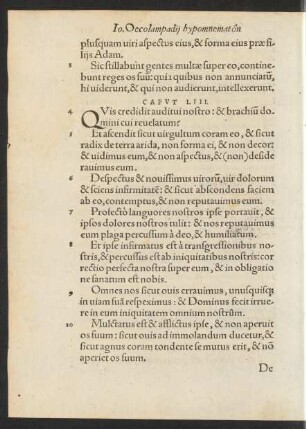 Io. Oecolampadij hypomnematōn
plusquam uiri aspectus eius, & forma eius præ fi-
lijs Adam.
5 Sic stillabunt gentes multæ super eo, contine-
bunt reges os suū: quia quibus non annunciatū,
hi uiderunt, & qui non audierunt, intellexerunt.
CAPVT LIII.
4 QVis credidit auditui nostro: & brachiū do-
mini cui reuelatum?
5 Et ascendit sicut uirgultum coram eo, & sicut
radix de terra arida, non forma ei, & non decor:
& uidimus eum, & non aspectus, & (non) deside
rauimus eum.
6 Despectus & nouissimus uirorū, uir dolorum
& sciens infirmitatē: & sicut abscondens faciem
ab eo, contemptus, & non reputauimus eum.
7 Profectò languores nostros ipse portauit, &
ipsos dolores nostros tulit: & nos reputauimus
eum plaga percussum à deo, & humiliatum.
8 Et ipse infirmatus est à transgressionibus no-
stris, & percussus est ab iniquitatibus nostris: cor-
rectio perfecta nostra super eum, & in obligatio
ne sanatum est nobis.
9 Omnes nos sicut ouis errauimus, unusquisq;
in uiam suā respeximus: & Dominus fecit irrue-
re in eum iniquitatem omnium nostrūm.
10 Mulctatus est & afflictus ipse, & non aperuit
os suum: sicut ouis ad immolandum ducetur, &
sicut agnus coram tondente se mutus erit, & nō
aperiet os suum.
De